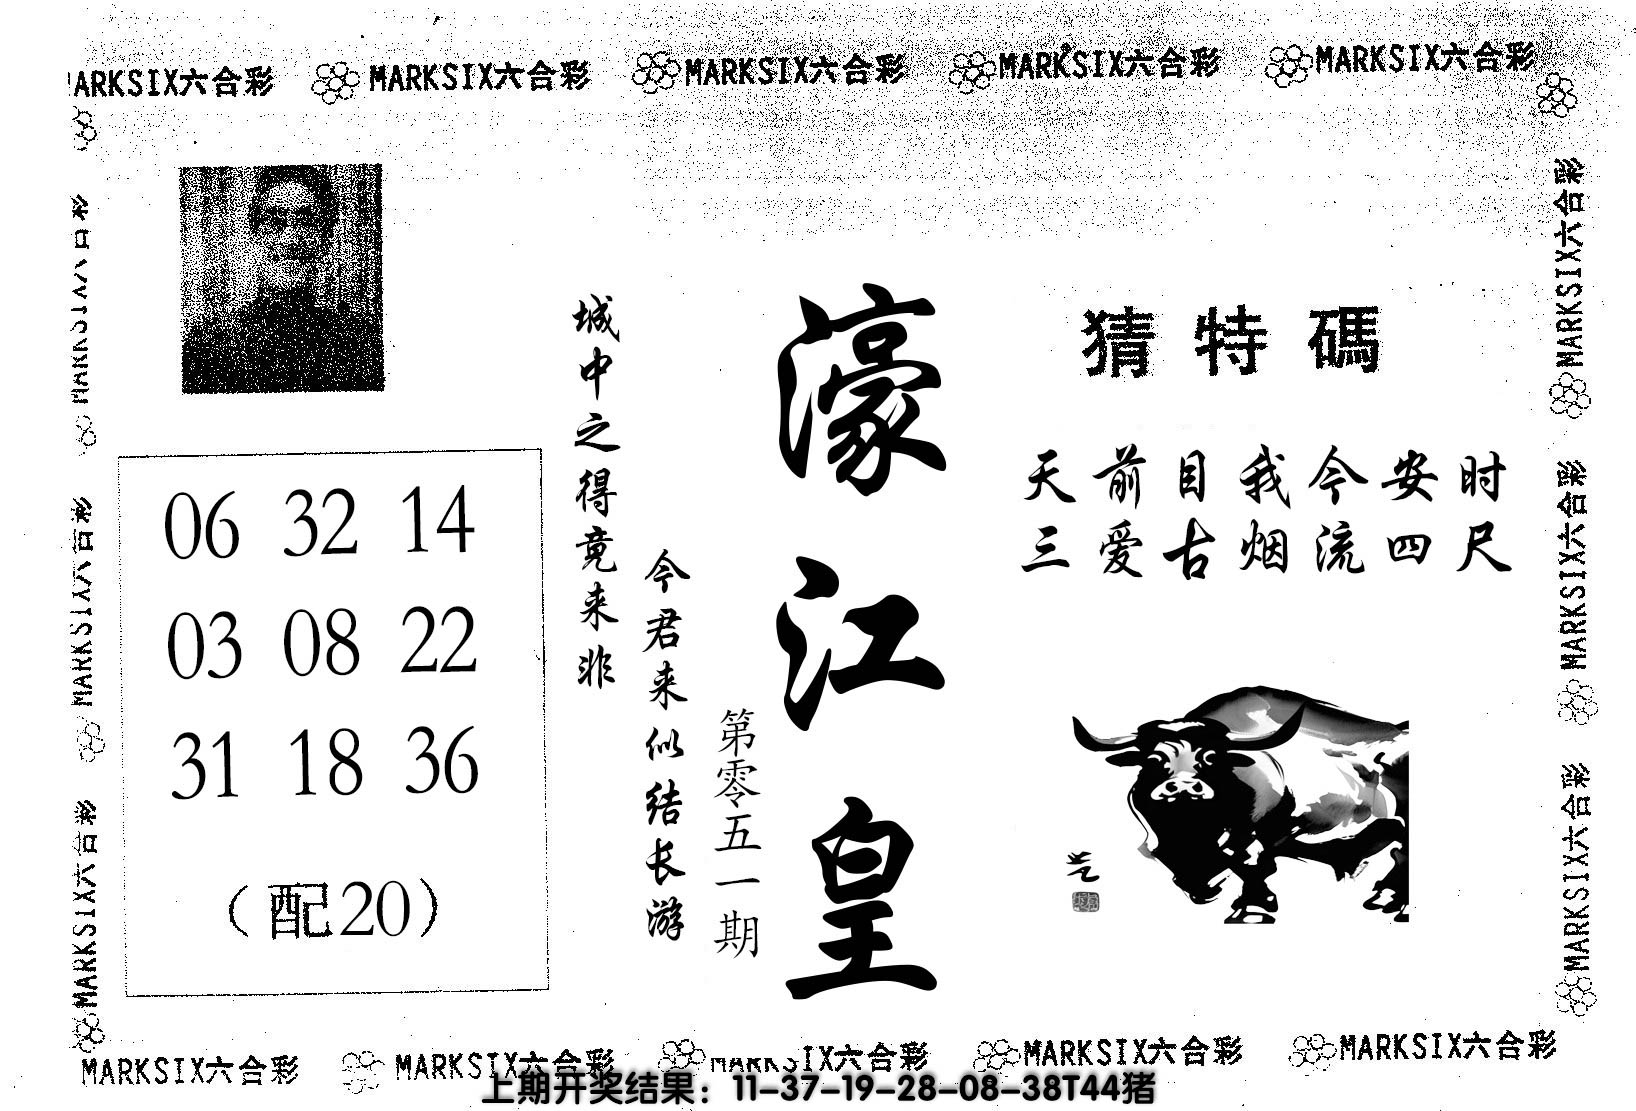 MARKSIX六合彩 MARKSIX六合彩 MARKSIX六合彩 MARKSIX六合彩
MARKSIX六合彩
MARKSIX六合彩
MARKSIX六合彩
MARKSIX六合彩
猜特碼
天前目我今安时
三爱古烟流四尺
濠江皇
第零五一期
城中之得竟来非
今君来似结长游
06 32 14
03 08 22
31 18 36
(配20)
MARKSIX六合彩
MARKSIX六合彩
MARKSIX六合彩 MARKSIX六合彩 MARKSIX六合彩 MARKSIX六合彩 MARKSIX六合彩
上期开奖结果：11-37-19-28-08-38T44猪